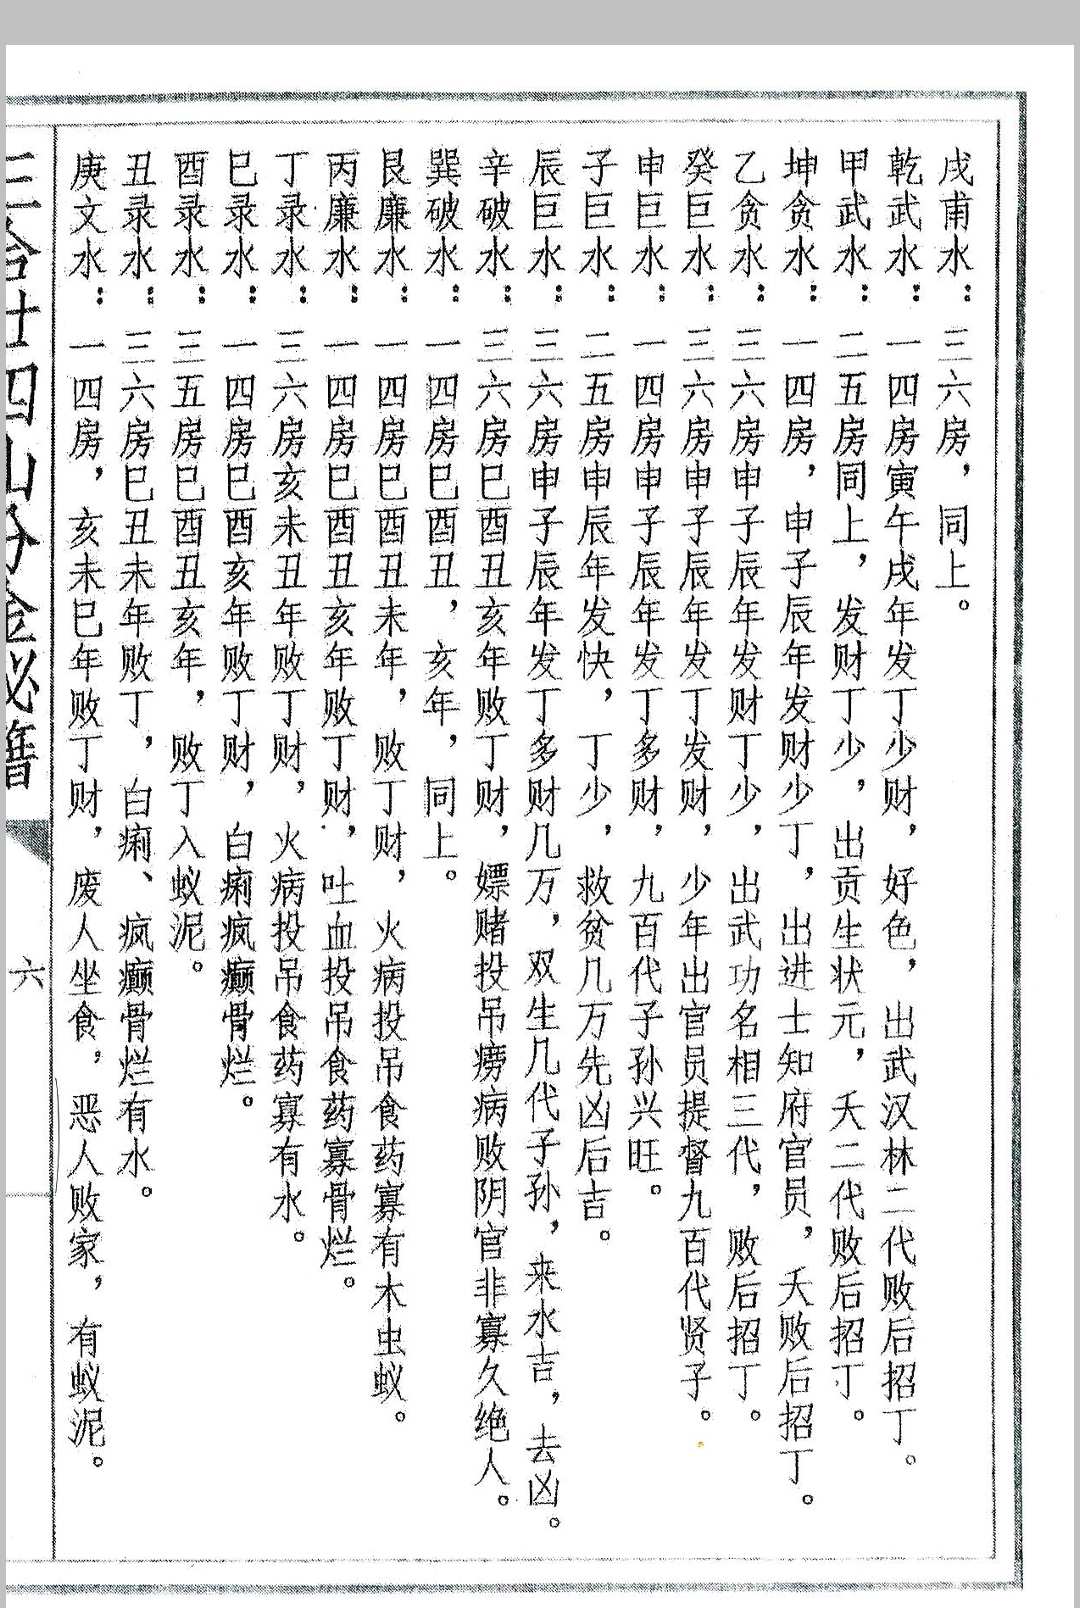 戌甫水：三六房，同上。
乾武水：一四房寅午戌年发丁少财，好色，出武汉林二代败后招丁。
甲武水：二五房同上，发财丁少，出贡生状元，夭二代败后招丁。
坤贪水：一四房，申子辰年发财少丁，出进士知府官员，夭败后招丁。
乙贪水：三六房申子辰年发财丁少，出武功名相三代，败后招丁。
癸巨水：三六房申子辰年发丁发财，少年出官员提督九百代贤子。
申巨水：一四房申子辰年发丁多财，九百代子孙兴旺。
子巨水：二五房申辰年发快，丁少，救贫几万先凶后吉。
辰巨水：三六房申子辰年发丁多财几万，双生几代子孙，来水吉，去凶。
辛破水：三六房巳酉丑亥年败丁财，嫖赌投吊痨病败阴官非寡久绝人。
巽破水：一四房巳酉丑，亥年，同上。
艮廉水：一四房巳酉丑未年，败丁财，火病投吊食药寡有木虫蚁。
丙廉水：一四房巳酉丑亥年败丁财，吐血投吊食药寡骨烂。
丁录水：三六房亥未丑年败丁财，火病投吊食药寡有水。
巳录水：一四房巳酉亥年败丁财，白痢疯癫骨烂。
酉录水：三五房巳酉丑亥年，败丁入蚁泥。
丑录水：三六房巳丑未年败丁，白痢、疯癫骨烂有水。
庚文水：一四房，亥未巳年败丁财，废人坐食，恶人败家，有蚁泥。
三合廿四山分金秘籍
六